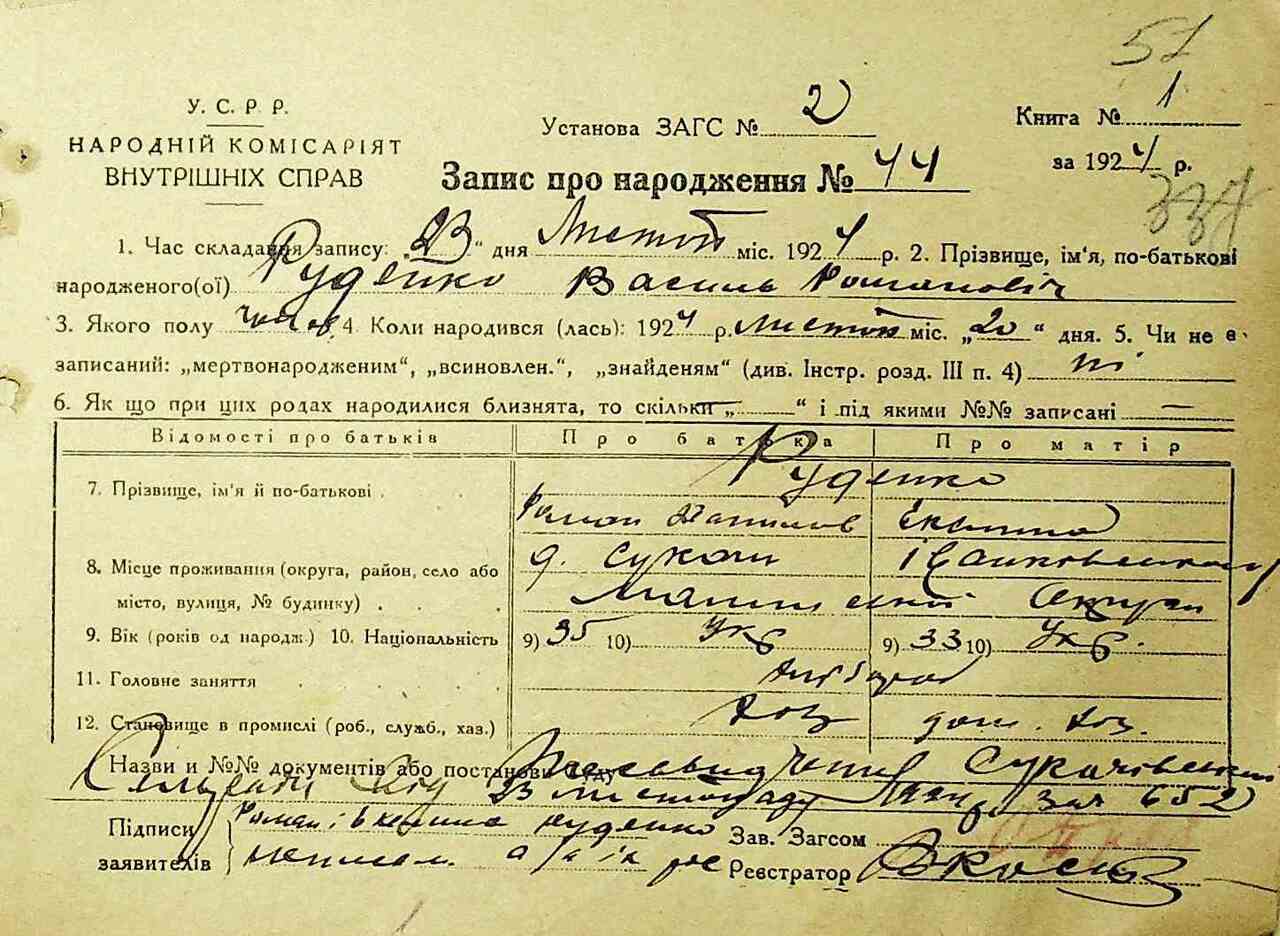 51
У. С. Р Р.
НАРОДНІЙ КОМІСАРІЯТ
ВНУТРІШНІХ СПРАВ
Установа ЗАГС № 2
Книга № 1
за 1924 р.
Запис про народження № 44
334
1. Час складання запису: „23“ дня Листоп міс. 1924 р. 2. Прізвище, ім'я, по-батькові
народженого(ої) Руденко Василь Романовіч
3. Якого полу чолов. 4. Коли народився (лась): 1924 р. листоп міс. „20“ дня. 5. Чи не є
записаний: „мертвонародженим“, „всиновлен.“, „знайденям“ (див. Інстр. розд. III п. 4) ні
6. Як що при цих родах народилися близнята, то скільки „ “ і під якими №№ записані —
Відомості про батьків Про батька Про матір
7. Прізвище, ім'я й по-батькові Руденко
Роман
8. Місце проживання (округа, район, село або
місто, вулиця, № будинку)
9. Вік (років од народж.) 10. Національність 9) 35 10) Укр 9) 33 10) Укр.
11. Головне заняття хлібороб
12. Становище в промислі (роб., служб., хаз.) хоз дом. хоз.
Назви и №№ документів або постанови суду
Сельради 23 листопаду 652
Підписи
заявителів
Роман і Руденко
Зав. Загсом
Реєстратор